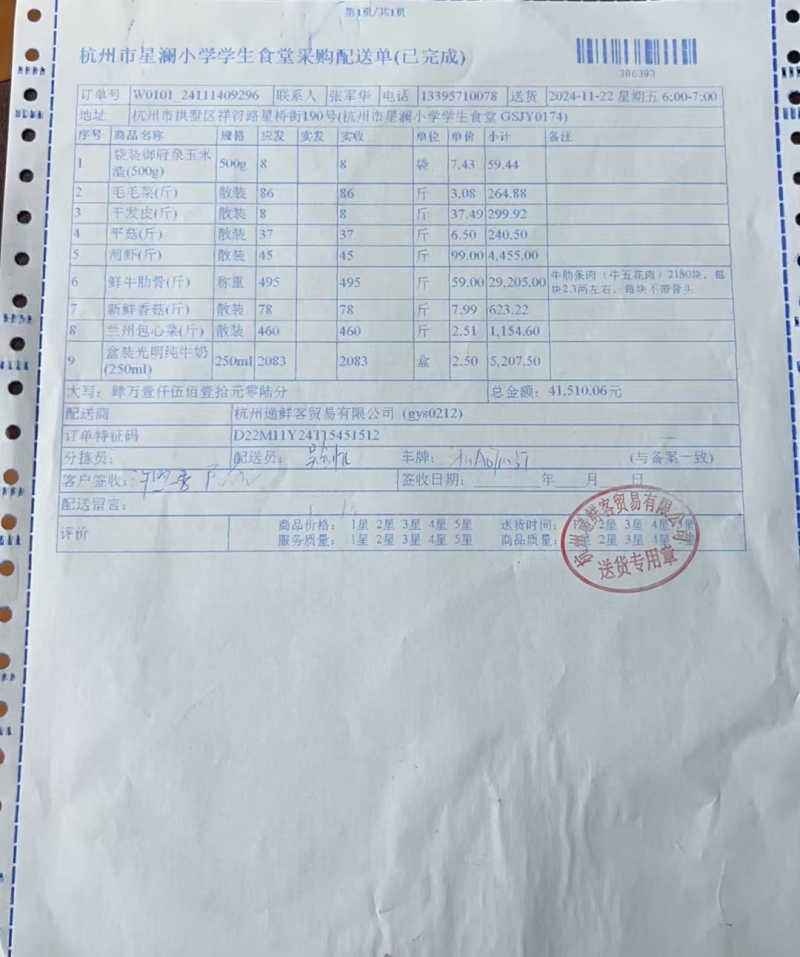 第1页/共1页
杭州市星澜小学学生食堂采购配送单(已完成)
386393
订单号 W0101_24111409296 联系人 张军华 电话 13395710078 送货 2024-11-22 星期五 6:00-7:00
地址 杭州市拱墅区祥符路星桥街190号(杭州市星澜小学学生食堂 GSJY0174)
序号 商品名称 规格 应发 实发 实收 单位 单价 小计 备注
1 袋装御府泉玉米渣(500g) 500g 8 8 袋 7.43 59.44
2 毛毛菜(斤) 散装 86 86 斤 3.08 264.88
3 干发皮(斤) 散装 8 8 斤 37.49 299.92
4 平菇(斤) 散装 37 37 斤 6.50 240.50
5 河虾(斤) 散装 45 45 斤 99.00 4,455.00
6 鲜牛肋骨(斤) 称重 495 495 斤 59.00 29,205.00 牛肋条肉（牛五花肉）2180块，每块2.3两左右，每块不带骨头
7 新鲜香菇(斤) 散装 78 78 斤 7.99 623.22
8 兰州包心菜(斤) 散装 460 460 斤 2.51 1,154.60
9 盒装光明纯牛奶(250ml) 250ml 2083 2083 盒 2.50 5,207.50
大写：肆万壹仟伍佰壹拾元零陆分 总金额：41,510.06元
配送商 杭州递鲜客贸易有限公司 (gys0212)
订单特征码 D22M11Y24T15451512
分拣员： 配送员： 车牌： (与备案一致)
客户签收： 签收日期： 年 月 日
配送留言：
评价 商品价格： 1星 2星 3星 4星 5星 送货时间： 1星 2星 3星 4星 5星
服务质量： 1星 2星 3星 4星 5星 商品质量： 1星 2星 3星 4星 5星
杭州递鲜客贸易有限公司
送货专用章